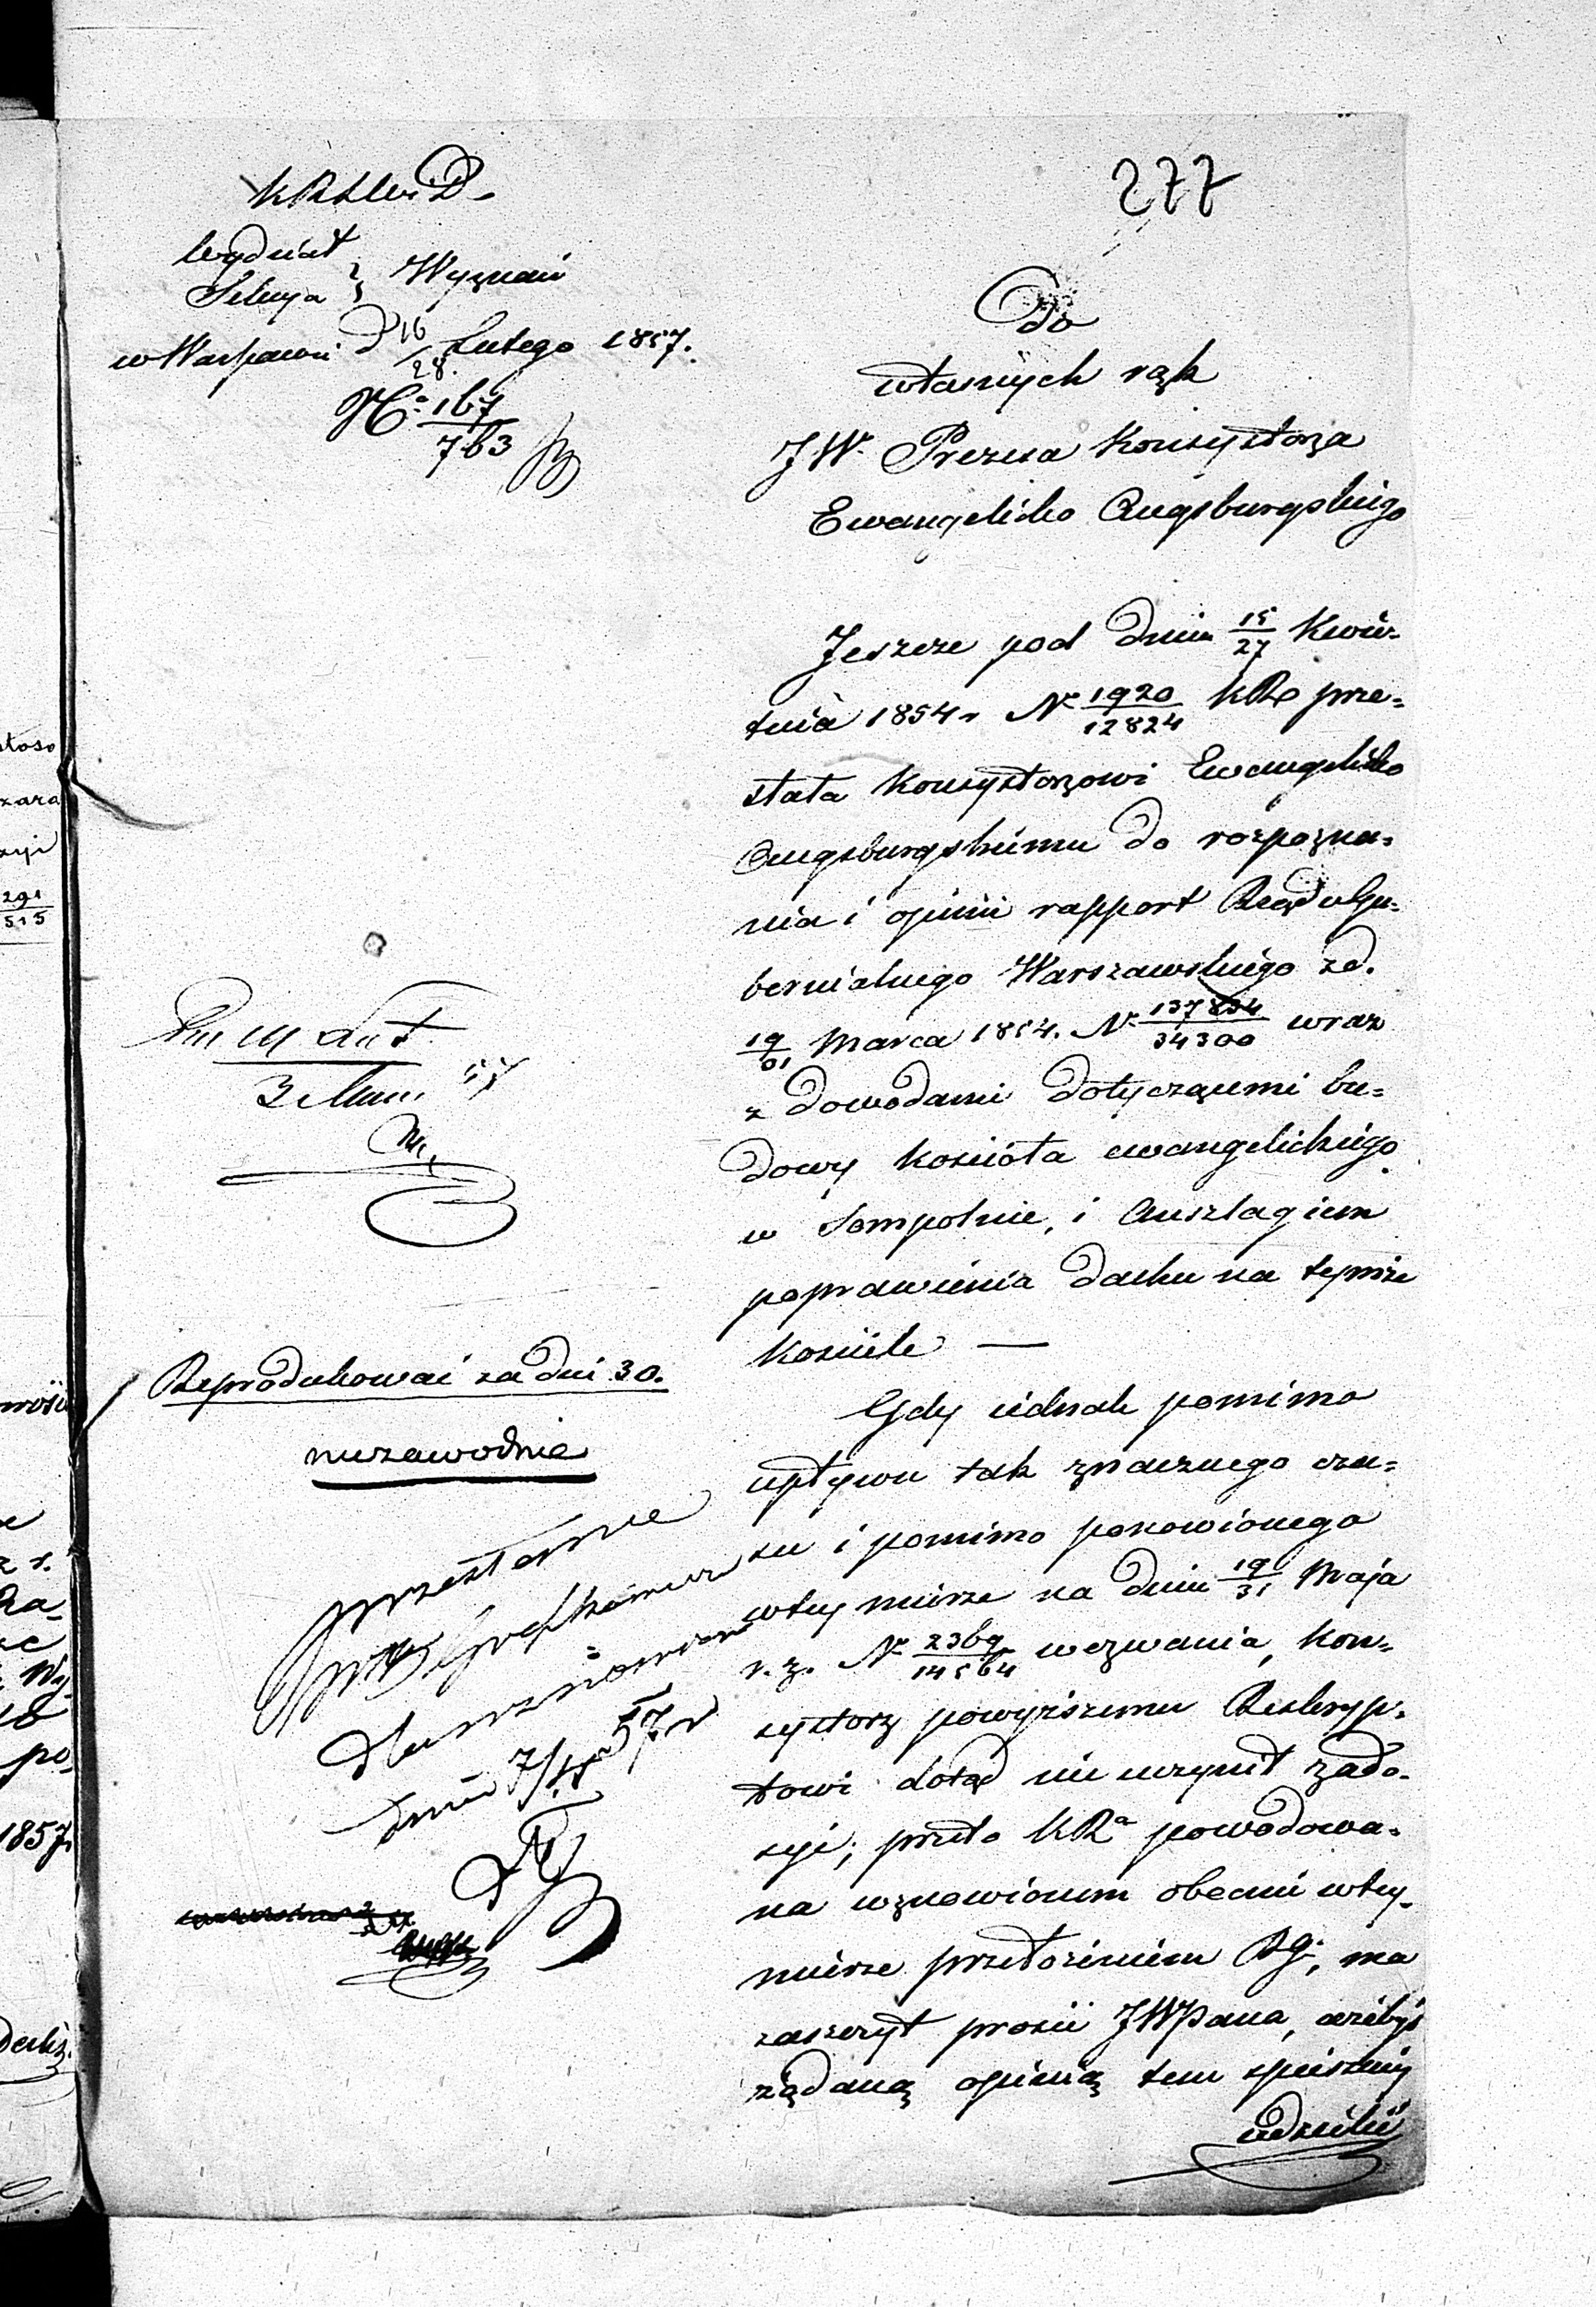 277
KRSW i D.
Wydział
Sekcya } Wyznań
w Warszawie d 16/28 Lutego 1857.
N° 167/763
Do
własnych rąk
JW. Prezesa Konsystorza
Ewangelicko Augsburgskiego
Jeszcze pod dniem 15/27 Kwie-
tnia 1854 r N° 1920/12824 KR prze-
słała Konsystorzowi Ewangelicko
Augsburgskiemu do rozpozna-
nia i opinii rapport Rządu Gu-
bernialnego Warszawskiego z d.
19/31 Marca 1854. N° 137834/34300 wraz
z dowodami dotyczącemi bu-
dowy kościoła ewangelickiego
w Sompolnie, i Anszlagiem
poprawienia dachu na tymże
kościele —
Gdy iednak pomimo
upływu tak znacznego cza-
su i pomimo ponowionego
w tey mierze na dniu 19/31 Maja
r. z. N° 2369/14564 wezwania, Kon-
systorz powyższemu Reskryp-
towi dotąd nie uczynił zado-
syć; przeto KRa powodowa-
na wznowionem obecnie w tey
mierze przełożeniem RG; ma
zaszczyt prosić JWPana, ażebyś
żądaną opinią tem spieszniey
udzielić
Reprodukować za dni 30.
niezawodnie
przesłane
dnia 7/4 57 r